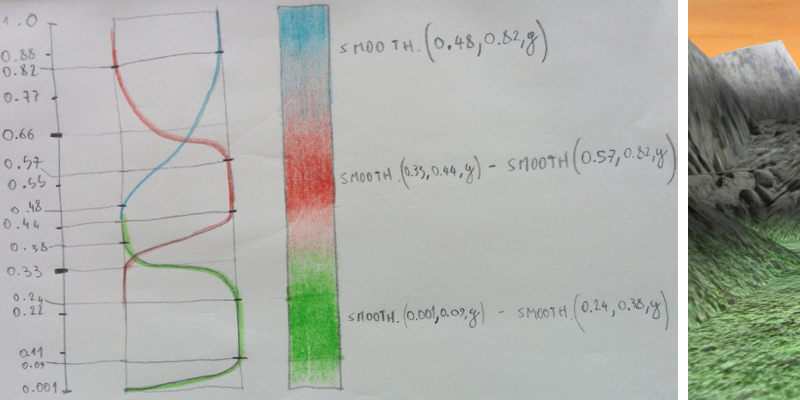 1.0
0.88
0.82
0.77
0.66
0.57
0.55
.48
0.44
0.38
0.33
0.24
0.22
0.11
0.09
0.001
SMOOTH.(0.48,0.82,y)
SMOOTH.(0.33,0.44,y) - SMOOTH(0.57,0.82,y)
SMOOTH.(0.001,0.09,y) - SMOOTH.(0.24,0.38,y)